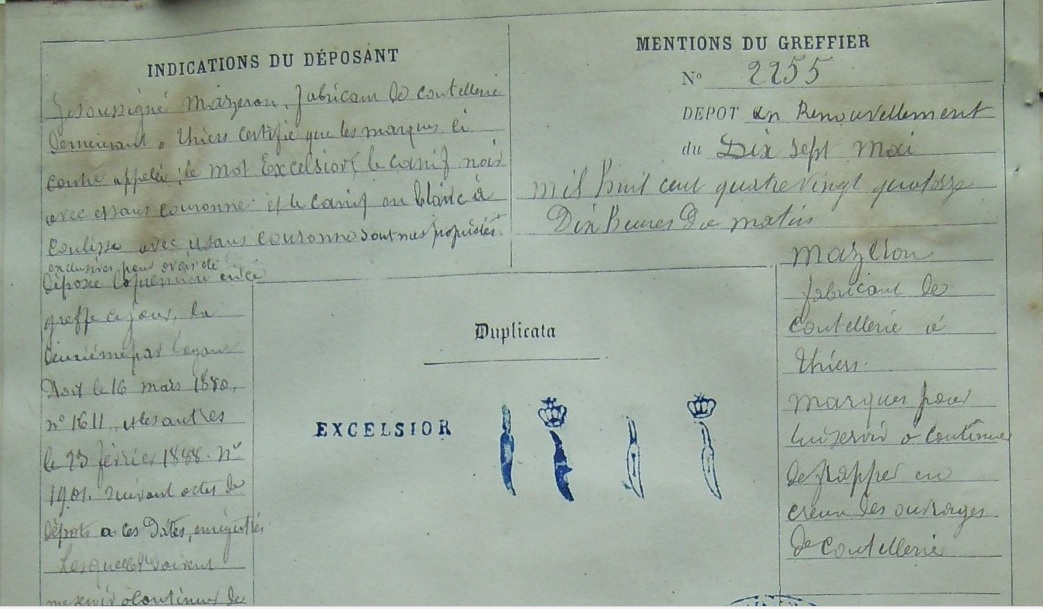 INDICATIONS DU DÉPOSANT
Je soussigné Mazeron, fabricant de coutellerie
demeurant à Thiers certifie que les marques ci
contre appelées: le mot Excelsior, le canif noir
avec et sans couronne et le canif en blanc à
coulisse avec et sans couronne sont mes propriétés
exclusives pour avoir été
déposée la première en ce
greffe ce jour, la
deuxième par
Doit le 16 mars 1880,
n° 1611, et les autres
le 23 février 1888. N°
1901. suivant actes de
dépôts à ces Dates, enregistrés
Lesquelles doivent
me servir à continuer de
MENTIONS DU GREFFIER
N° 2255
DEPOT en Renouvellement
du Dix sept Mai
mil huit cent quatre vingt quatorze
Dix heures du matin
Mazeron
fabricant de
coutellerie à
Thiers.
Marques pour
lui servir à continuer
de frapper en
creux des ouvrages
de coutellerie
Duplicata
EXCELSIOR